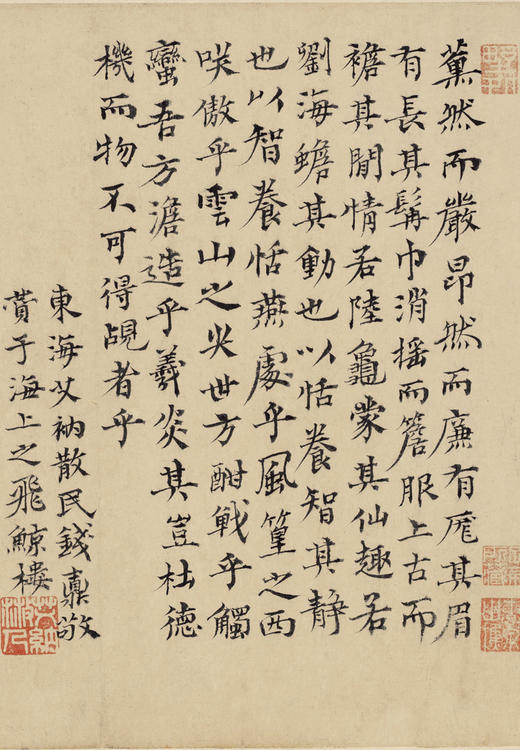 薰然而嚴昂然而廉有厖其眉
有長其髯巾消搖而簷服上古而
襜其閒情若陸龜蒙其仙趣若
劉海蟾其動也以恬養智其靜
也以智養恬燕處乎風篁之西
咲傲乎雲山之尖世方酣戰乎觸
蠻吾方澹造乎羲炎其豈杜德
機而物不可得覘者乎
東海艾衲散民錢鼒敬
賛于海上之飛鯨樓